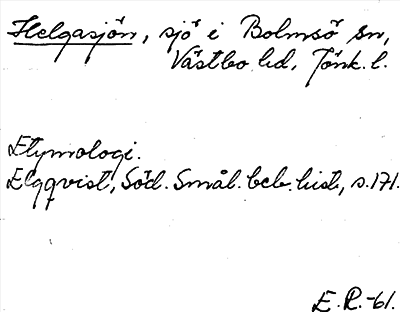 Helgasjön, sjö i Bolmsö sn,
Västbo hd, Jönk. l.
Etymologi.
Elgqvist, Söd. Smål. beb. hist, s. 171.
E. R. -61.